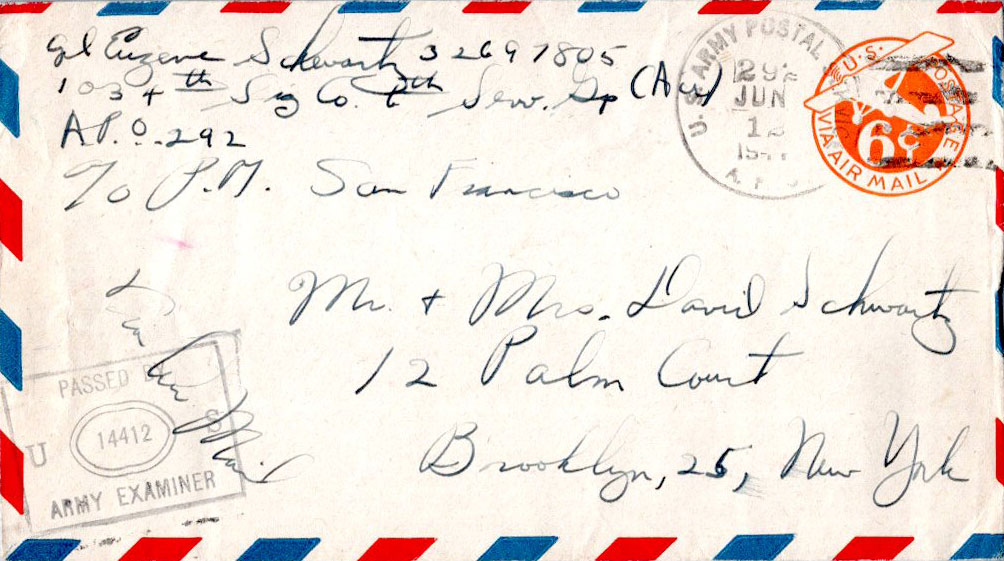 Eugene Schwartz 32697805
1034th Sig Co. 6th Serv. Gp (Avn)
A.P.O. 292
℅ P.M. San Francisco
U.S. ARMY POSTAL
292
JUN
12
A.P.O.
U.S. POSTAGE
6¢
VIA AIR MAIL
Mr. + Mrs. David Schwartz
12 Palm Court
Brooklyn, 25, New York
Via Air Mail
PASSED
U 14412 S
ARMY EXAMINER